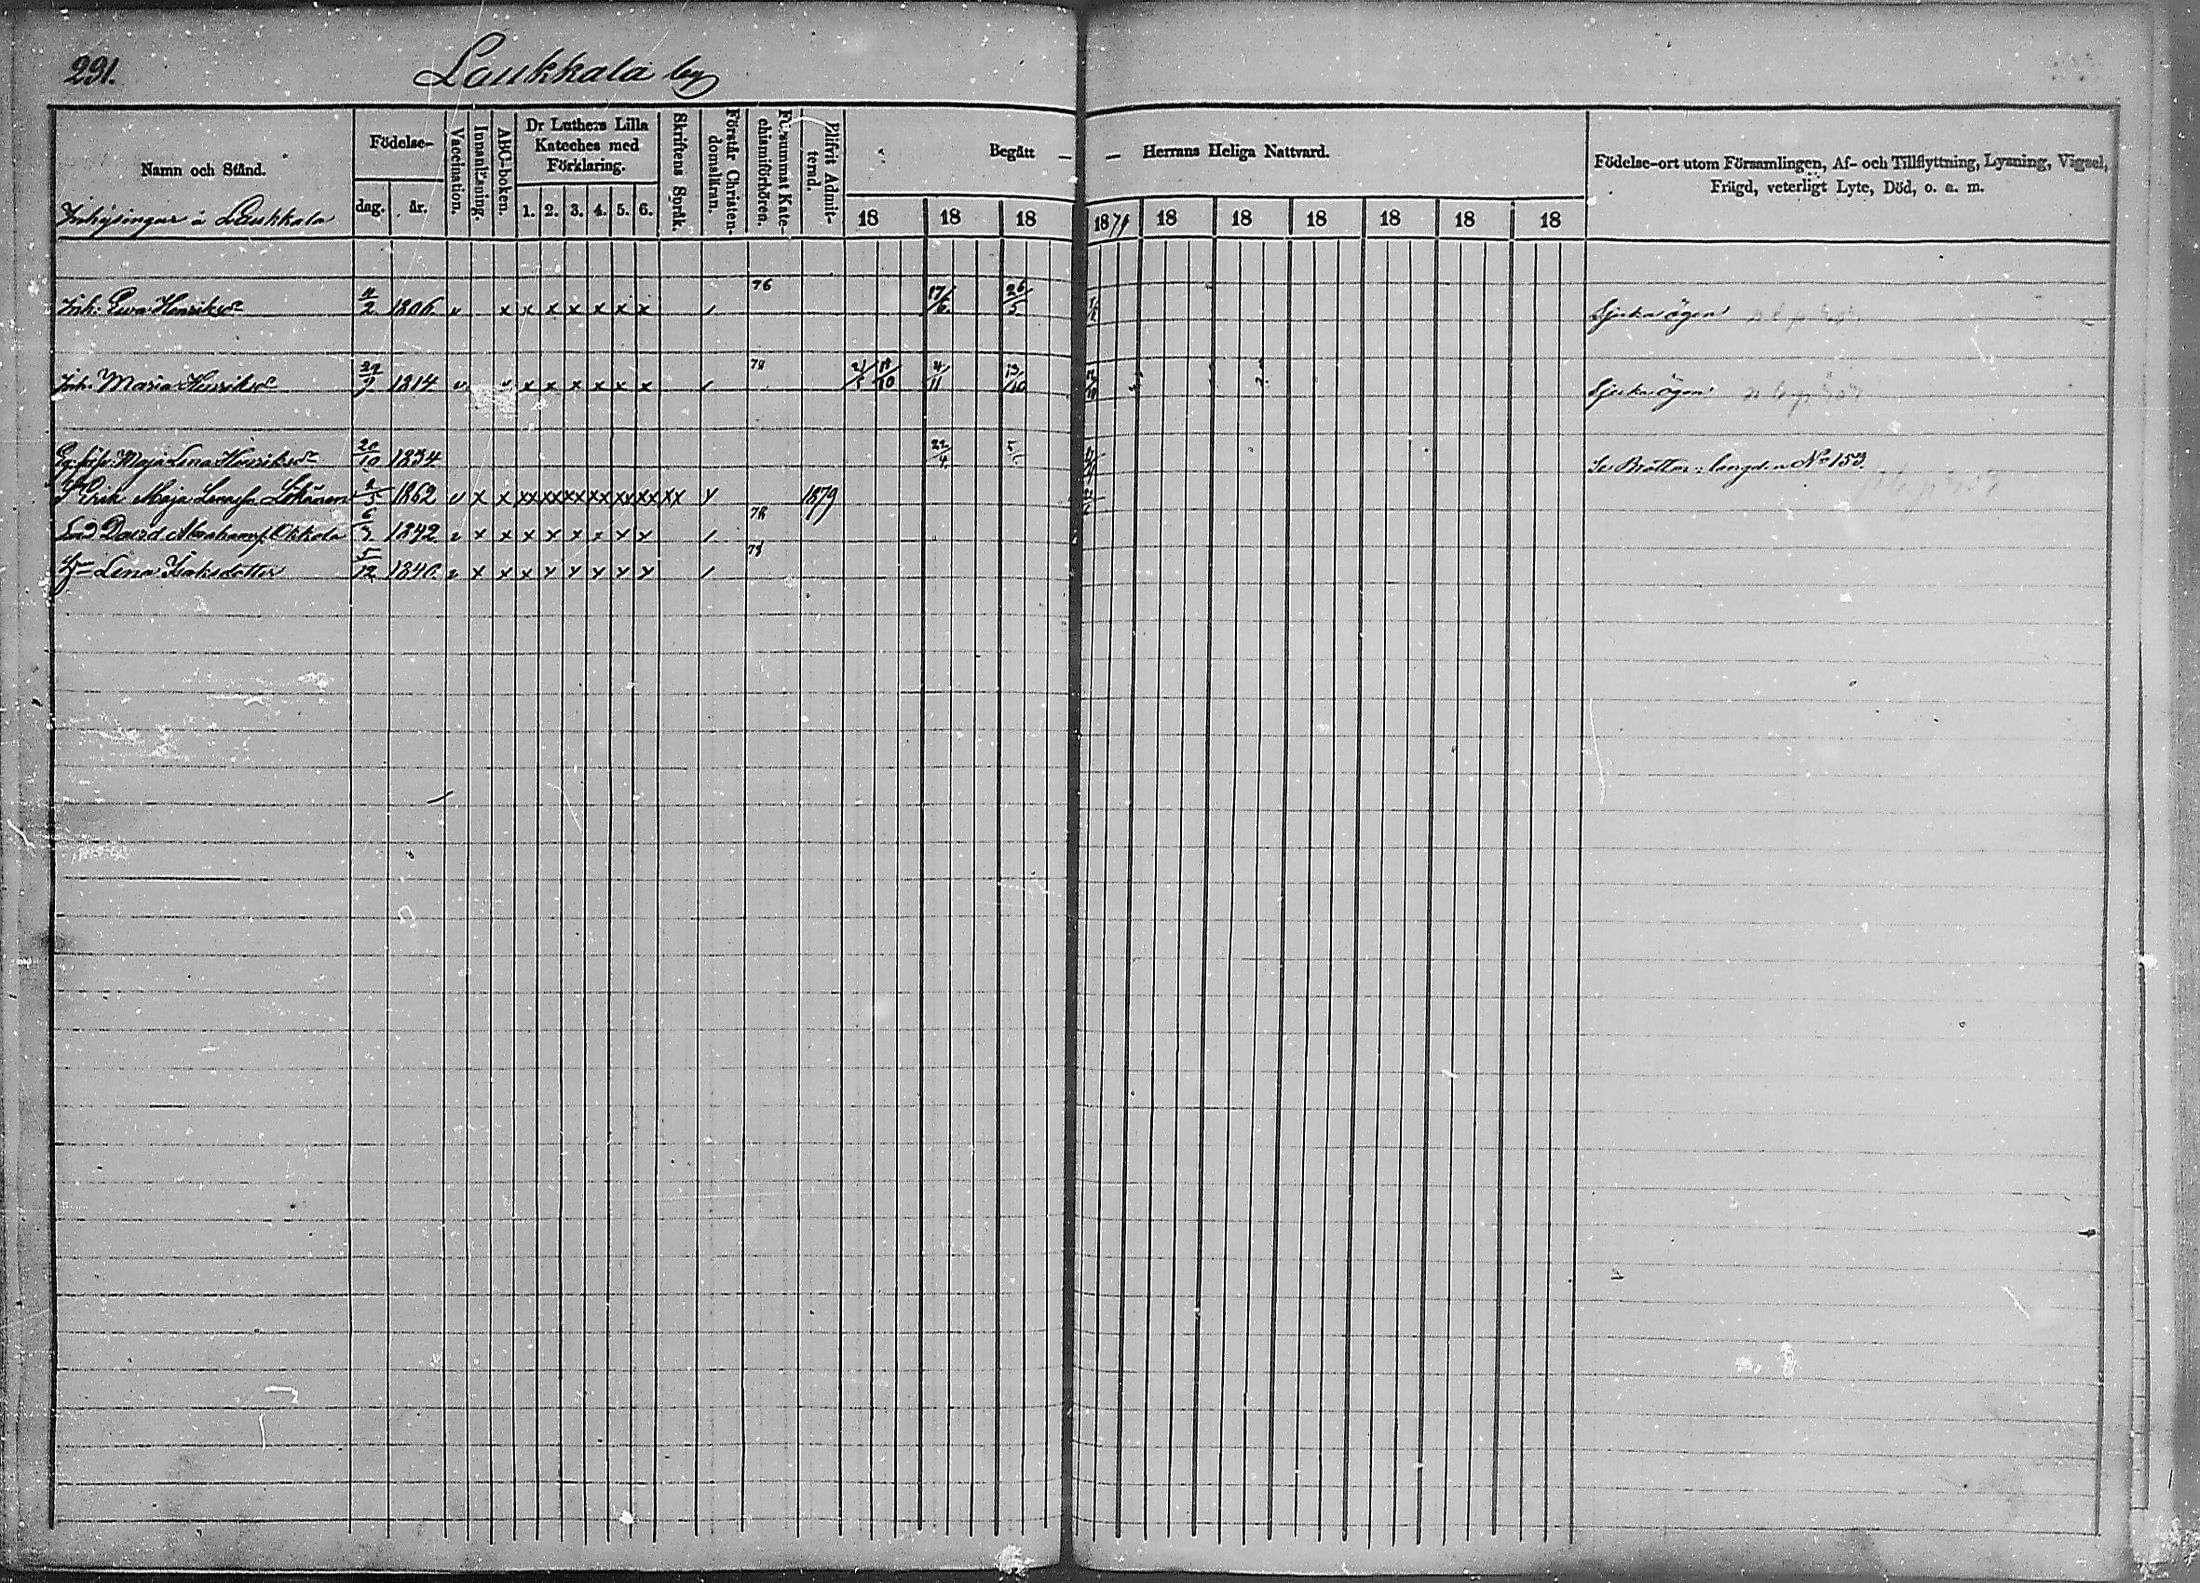 291. Laukkala by
Namn och Stånd.
Födelse-
dag. år.
Vaccination.
Innanläsning.
ABC-boken.
Dr Luthers Lilla Kateches med Förklaring.
1. 2. 3. 4. 5. 6.
Skriftens Språk.
Förstår Christen-domsläran.
Försummat Kate-chismiförhören.
Blifvit Admit-terad.
Begått — — Herrans Heliga Nattvard.
18 18 18 1879 18 18 18 18 18 18
Födelse-ort utom Församlingen, Af- och Tillflyttning, Lysning, Vigsel,
Frägd, veterligt Lyte, Död, o. s. m.
Inhysingar å Laukkala
Inh. Ewa Henriksdr 1806 v x x x x x x x / 76 17/6 26/5 Sjuka ögon
Inh. Maria Henriksdr 29/9 1814 v x x x x x x / 78 4/11 13/10 Sjuka ögon
Maja Lena Henriksdr 20/10 1834 22/4 Se Brottm: längden No 153.
Erik Maja Lenasson 1862 v x x xx xx xx xx xx xx xx 1879
David Abrahamss. Okkola 1842 v x x x x x x x x / 78
H:u Lena Isaksdotter 5/12 1840 v x x x x x x x x / 78